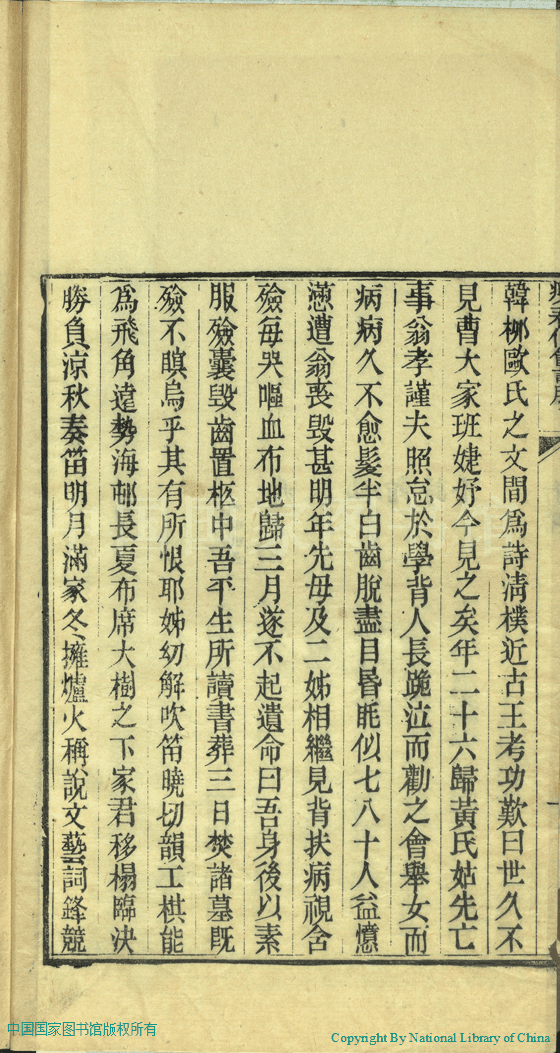 韓柳歐氏之文間爲詩清樸近古王考功歎曰世久不
見曹大家班婕妤今見之矣年二十六歸黃氏姑先亡
事翁孝謹夫照怠於學背人長跪泣而勸之會舉女而
病病久不愈髮半白齒脫盡目昏眊似七八十人益憊
懣遭翁喪毀甚明年先母及二姊相繼見背扶病視含
殮每哭嘔血布地歸三月遂不起遺命曰吾身後以素
服殮囊毀齒置柩中吾平生所讀書葬三日焚諸墓旣
殮不瞑烏乎其有所恨耶姊幼解吹笛曉切韻工棋能
爲飛角遠勢海邨長夏布席大樹之下家君移榻臨決
勝負涼秋奏笛明月滿家冬擁爐火稱說文藝詞鋒競
中国国家图书馆版权所有
Copyright By National Library of China